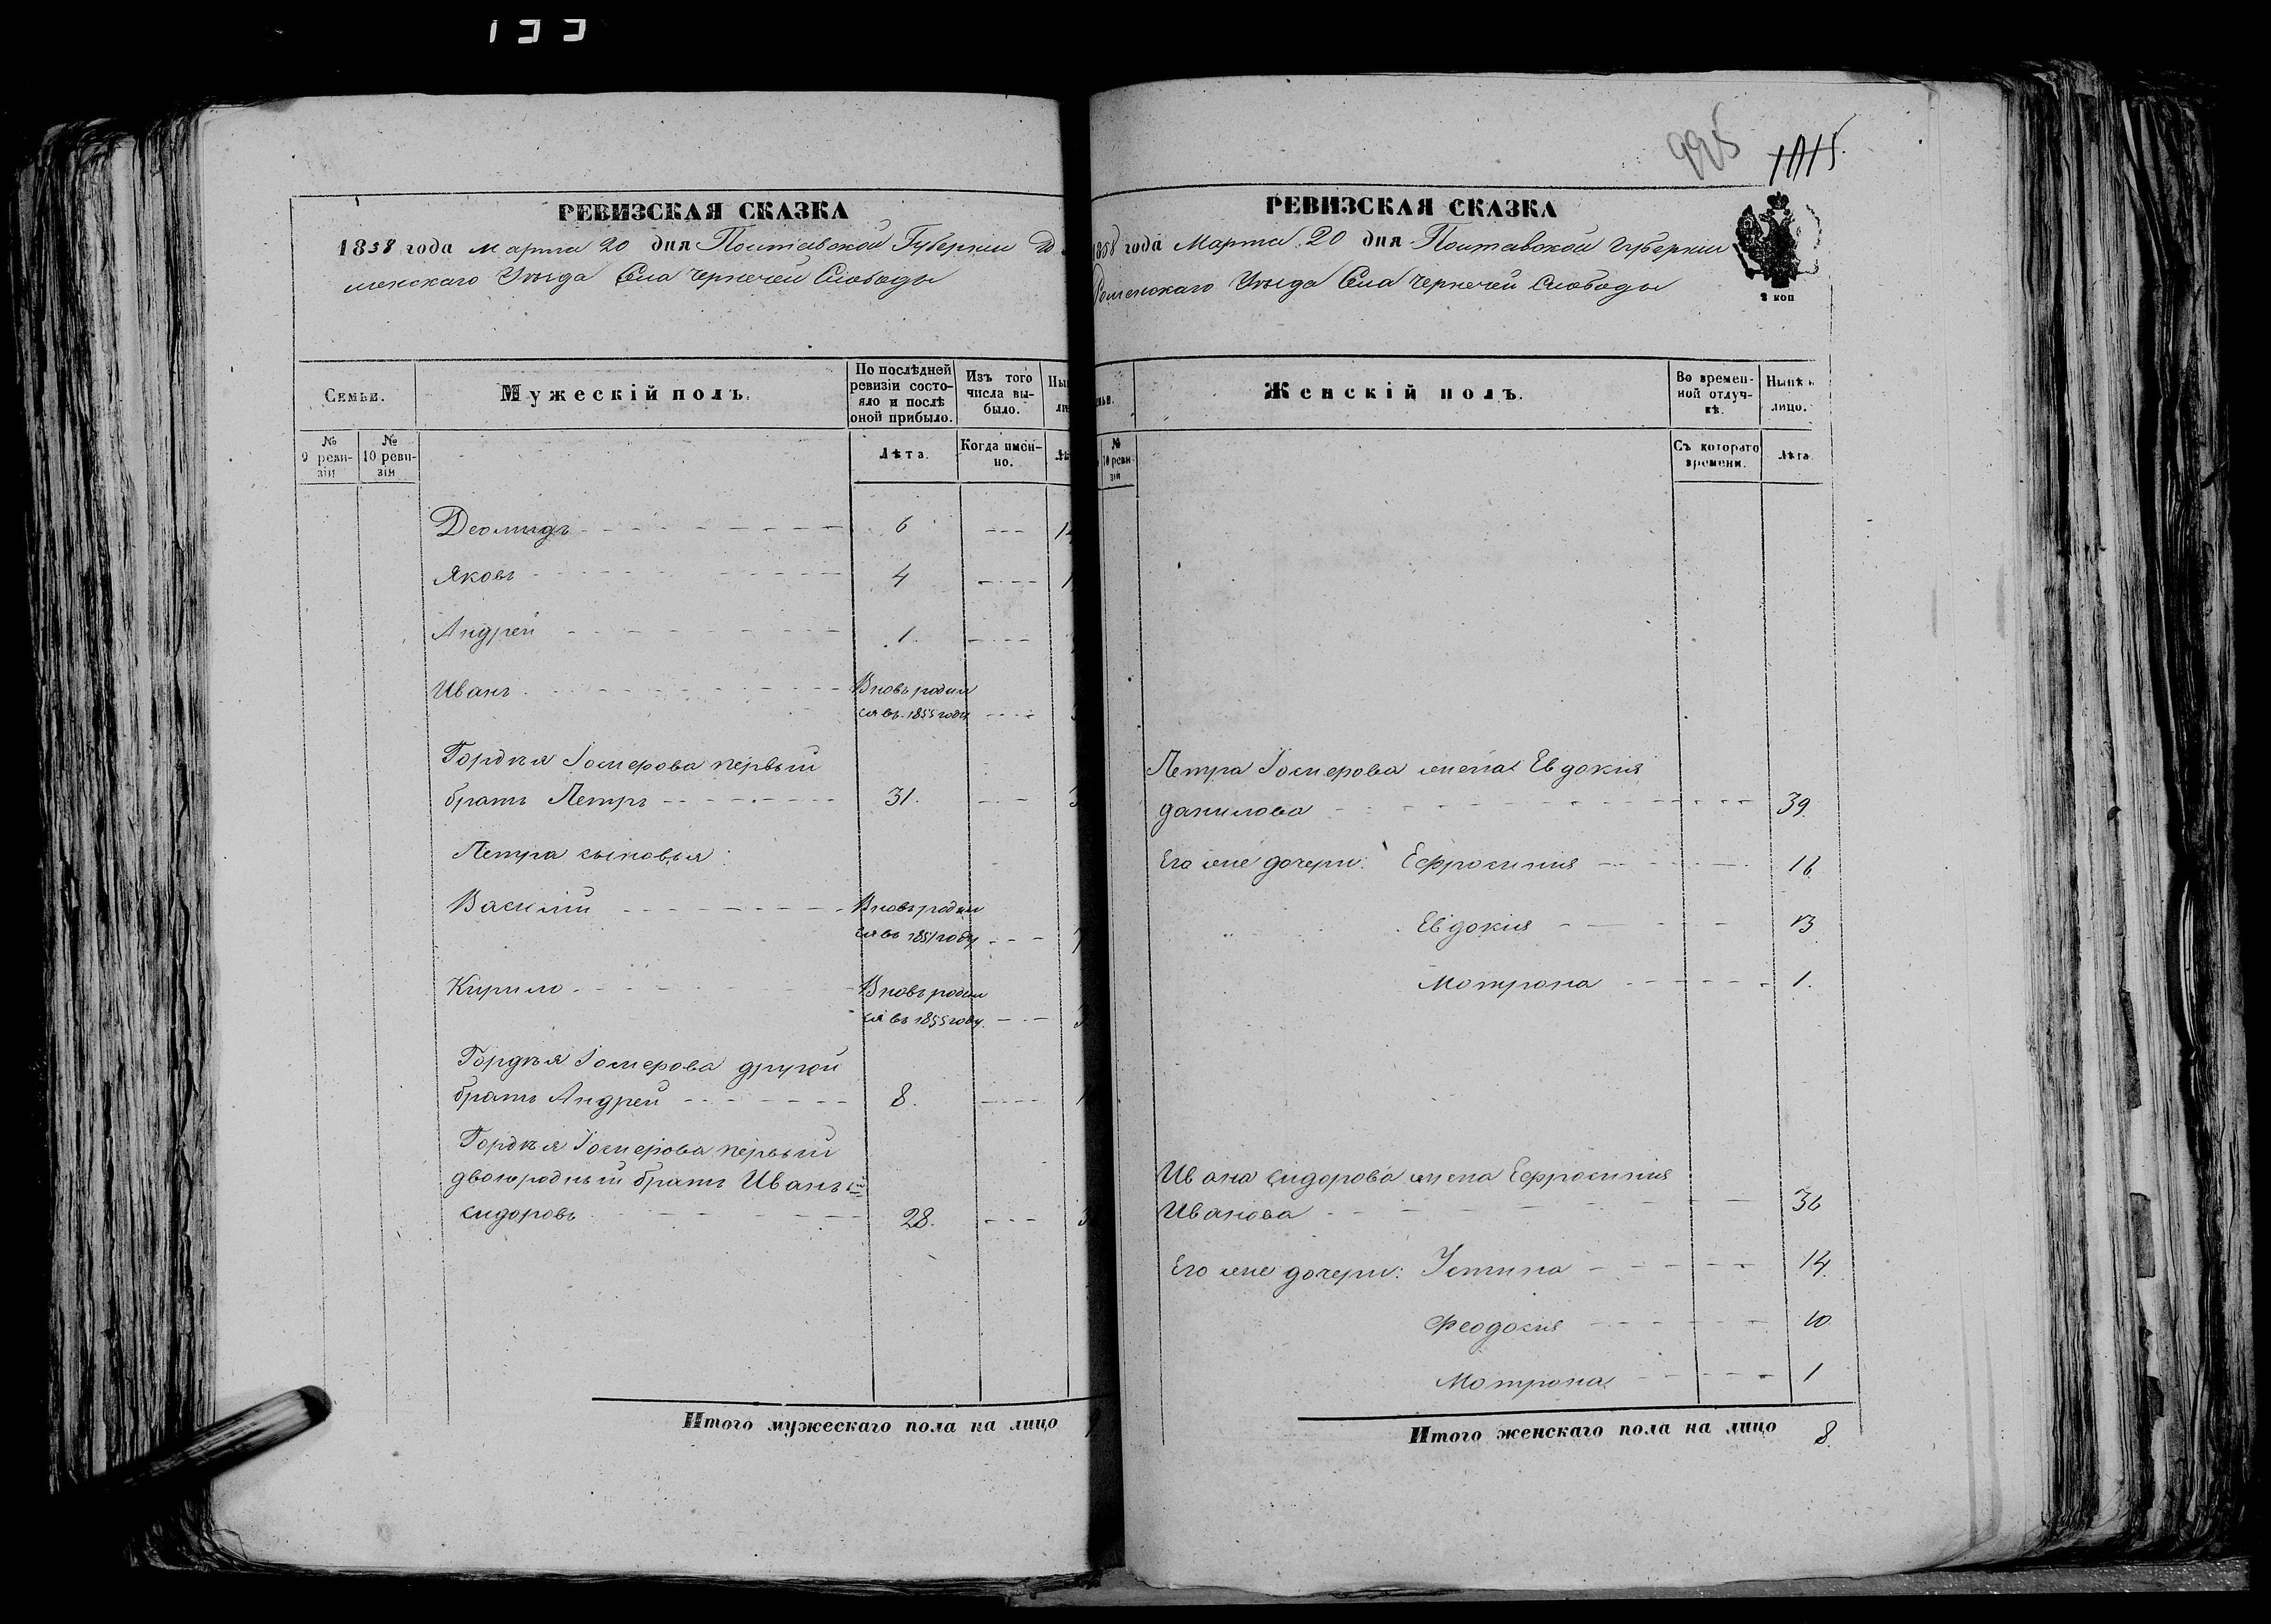 995 1015.
РЕВИЗСКАЯ СКАЗКА
1858 года Марта 20 дня Полтавской Губерніи Ро
менскаго Уѣзда Села Чернечей Слободы
Семьи.
Мужескій полъ.
По послѣдней ревизіи состояло и послѣ оной прибыло.
Изъ того числа выбыло.
№ 9 ревизіи
№ 10 ревизіи
Лѣта.
Когда именно.
Деомидъ 6
Яковъ 4
Андрей 1.
Иванъ Вновь родил
ся въ 1855 году
Гордѣя Гомерова первый
братъ Петръ 31.
Петра сыновья:
Василій Вновь родил
ся въ 1851 году
Кирило Вновь родил
ся въ 1855 году.
Гордѣя Гомерова другой
братъ Андрей 8.
Гордѣя Гомерова первый
двоюродный братъ Иванъ
Сидоровъ 28.
Итого мужескаго пола на лицо
РЕВИЗСКАЯ СКАЗКА
1858 года Марта 20 дня Полтавской Губерніи
Роменскаго Уѣзда Села Чернечей Слободы
2 коп
Женскій полъ.
Во временной отлучкѣ.
Нынѣ
лицо.
№ 10 ревизіи
Съ котораго времени.
Лѣта
Петра Гомерова жена Евдокія
Данилова 39.
Его же дочери: Ефросинія 16
Евдокія 13
Мотрона 1.
Ивана Сидорова жена Ефросинія
Иванова 36
Его же дочери: Устина 14.
Феодосія 10.
Мотрона 1
Итого женскаго пола на лицо 8.